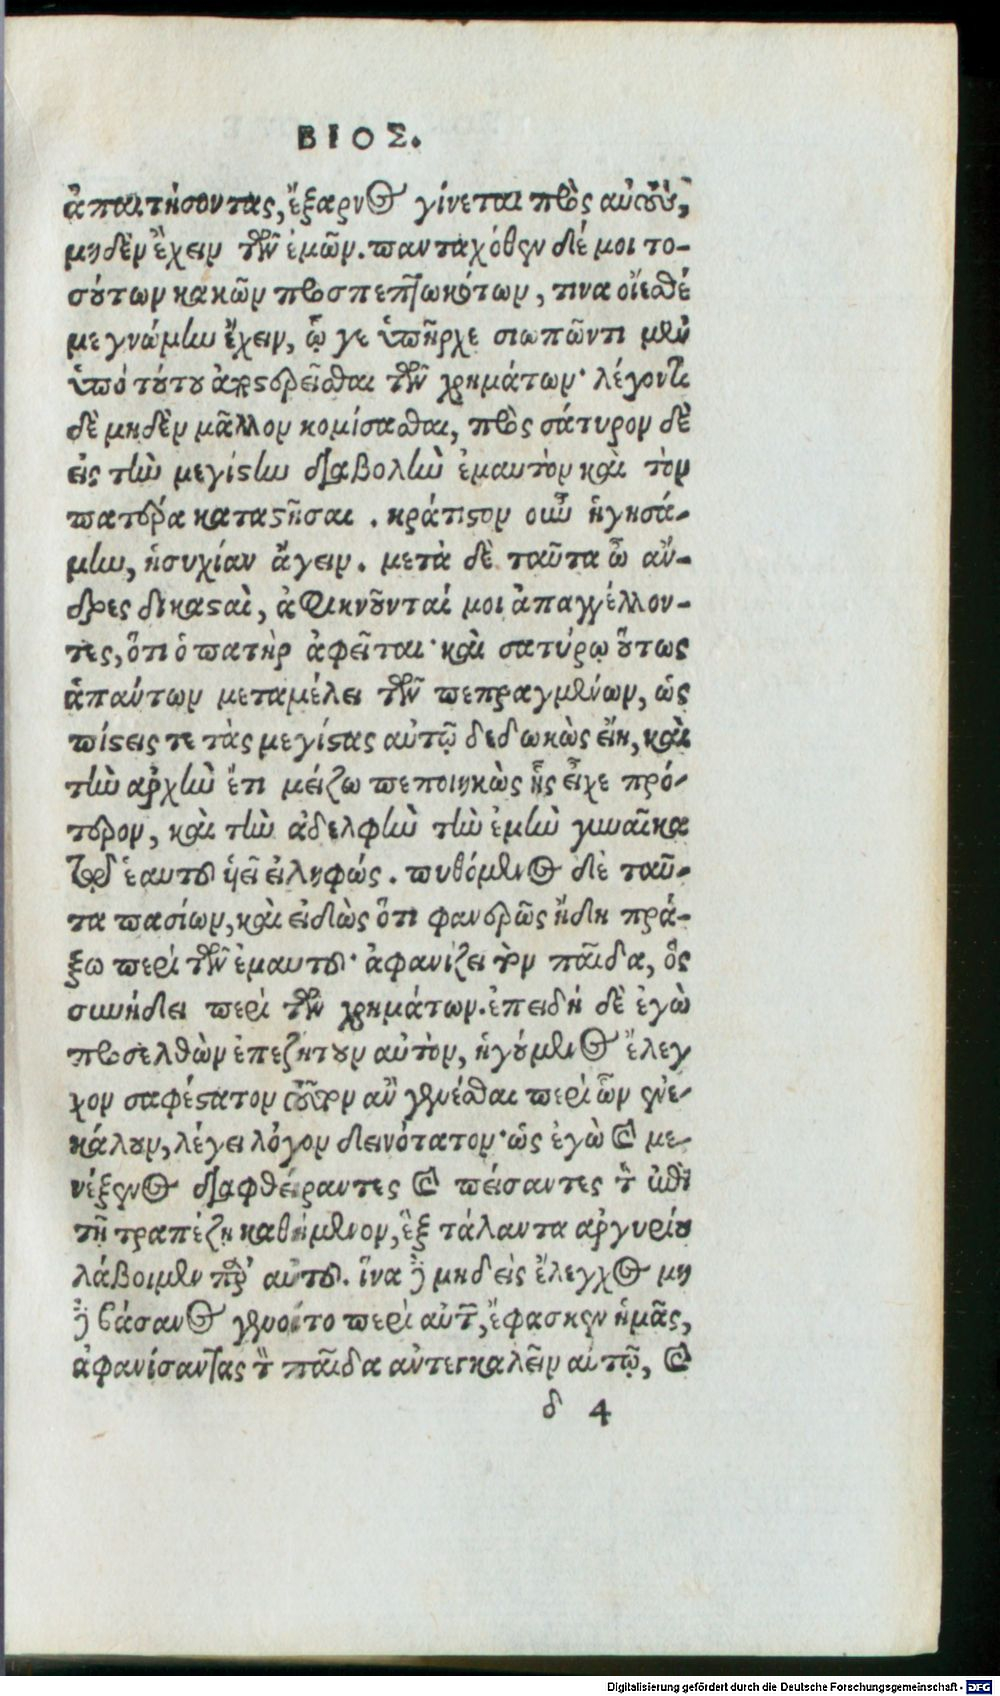 ΒΙΟΣ.
ἀπαιτήσοντας, ἔξαρνος γίνεται πρὸς αὐτοὺς,
μηδὲν ἔχειν τῶν ἐμῶν. πανταχόθεν δέ μοι το-
σούτων κακῶν προσπεπτωκότων, τίνα οἴεσθέ
με γνώμην ἔχειν, ᾧ γε ὑπῆρχε σιωπῶντι μὲν
ὑπὸ τούτου ἀποστερεῖσθαι τῶν χρημάτων· λέγοντι
δὲ μηδὲν μᾶλλον κομίσασθαι, πρὸς σάτυρον δὲ
εἰς τὴν μεγίστην διαβολὴν ἐμαυτὸν καὶ τὸν
πατέρα καταστῆσαι. κράτιστον οὖν ἡγησά-
μην, ἡσυχίαν ἄγειν. μετὰ δὲ ταῦτα ὦ ἄν-
δρες δικασταὶ, ἀφικνοῦνταί μοι ἀπαγγέλλον-
τες, ὅτι ὁ πατὴρ ἀφεῖται· καὶ σατύρῳ οὕτως
ἁπάντων μεταμέλει τῶν πεπραγμένων, ὡς
πίστεις τε τὰς μεγίστας αὐτῷ δεδωκὼς εἴη, καὶ
τὴν ἀρχὴν ἔτι μείζω πεποιηκὼς ἧς εἶχε πρό-
τερον, καὶ τὴν ἀδελφὴν τὴν ἐμὴν γυναῖκα
τῷ ἑαυτοῦ υἱεῖ εἰληφώς. πυθόμενος δὲ ταῦ-
τα πασίων, καὶ εἰδὼς ὅτι φανερῶς ἤδη πρά-
ξω περὶ τῶν ἐμαυτοῦ· ἀφανίζει τὸν παῖδα, ὃς
συνῄδει περὶ τῶν χρημάτων. ἐπειδὴ δὲ ἐγὼ
προσελθὼν ἐπεζήτουν αὐτὸν, ἡγούμενος ἔλεγ
χον σαφέστατον τοῦτον ἂν γενέσθαι περὶ ὧν ἐνε-
κάλουν, λέγει λόγον δεινότατον· ὡς ἐγὼ καὶ με-
νέξενος διαφθείραντες καὶ πείσαντες τὸν ἐπὶ
τῇ τραπέζῃ καθήμενον, ἓξ τάλαντα ἀργυρίου
λάβοιμεν παρ' αὐτοῦ. ἵνα δὲ μηδεὶς ἔλεγχος μη
δὲ βάσανος γένοιτο περὶ αὐτῶν, ἔφασκεν ἡμᾶς,
ἀφανίσαντας τὸν παῖδα ἀντεγκαλεῖν αὐτῷ, καὶ
δ 4
Digitalisierung gefördert durch die Deutsche Forschungsgemeinschaft - DFG